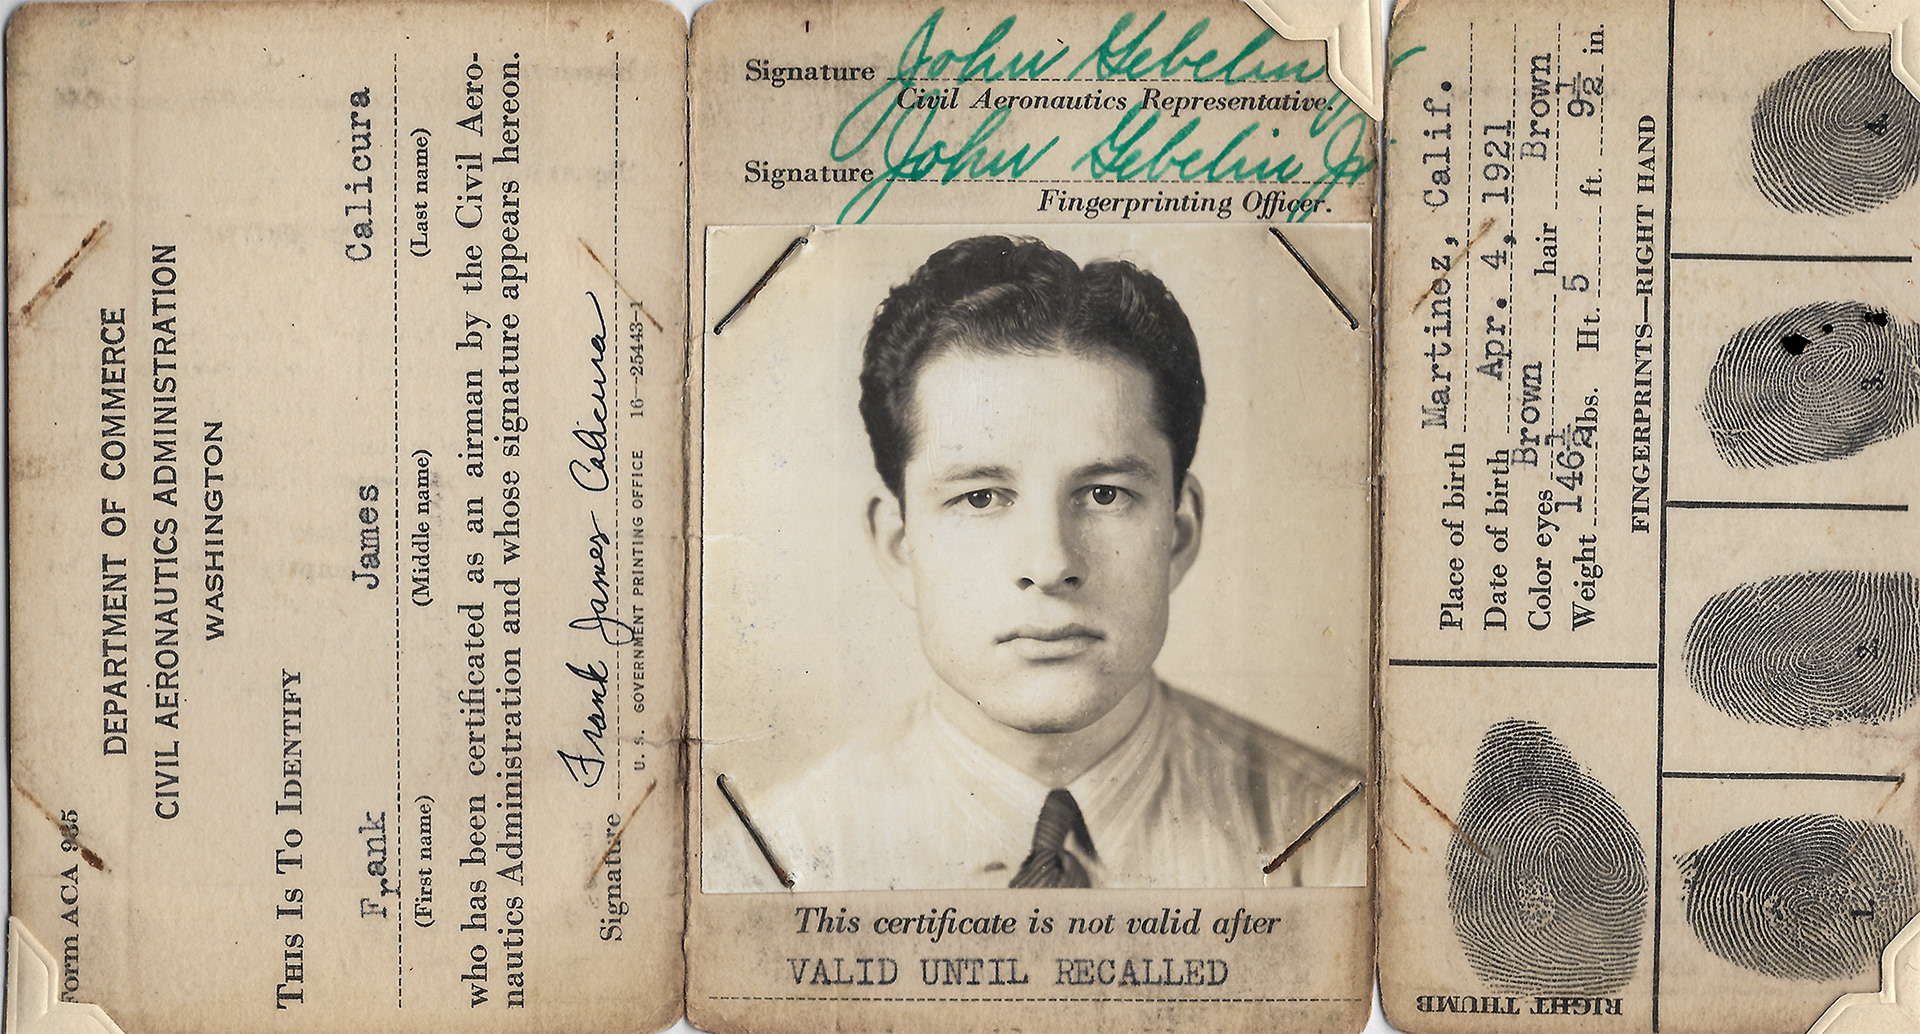 Form ACA 935
DEPARTMENT OF COMMERCE
CIVIL AERONAUTICS ADMINISTRATION
WASHINGTON
THIS IS TO IDENTIFY
Frank James Calicura
(First name) (Middle name) (Last name)
who has been certificated as an airman by the Civil Aero-
nautics Administration and whose signature appears hereon.
Signature Frank James Calicura
U. S. GOVERNMENT PRINTING OFFICE 16—25443-1
Signature John Gebelin Jr
Civil Aeronautics Representative.
Signature John Gebelin Jr
Fingerprinting Officer.
This certificate is not valid after
VALID UNTIL RECALLED
Place of birth Martinez, Calif.
Date of birth Apr. 4, 1921
Color eyes Brown hair Brown
Weight 146½ lbs. Ht. 5 ft. 9½ in.
FINGERPRINTS—RIGHT HAND
RIGHT THUMB
1.
2.
3.
4.